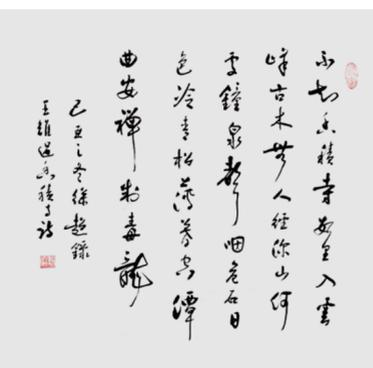 不知香積寺數里入雲
峰古木無人徑深山何
處鐘泉聲咽危石日
色冷青松薄暮空潭
曲安禪制毒龍
己亥之冬徐超錄
王維過香積寺詩